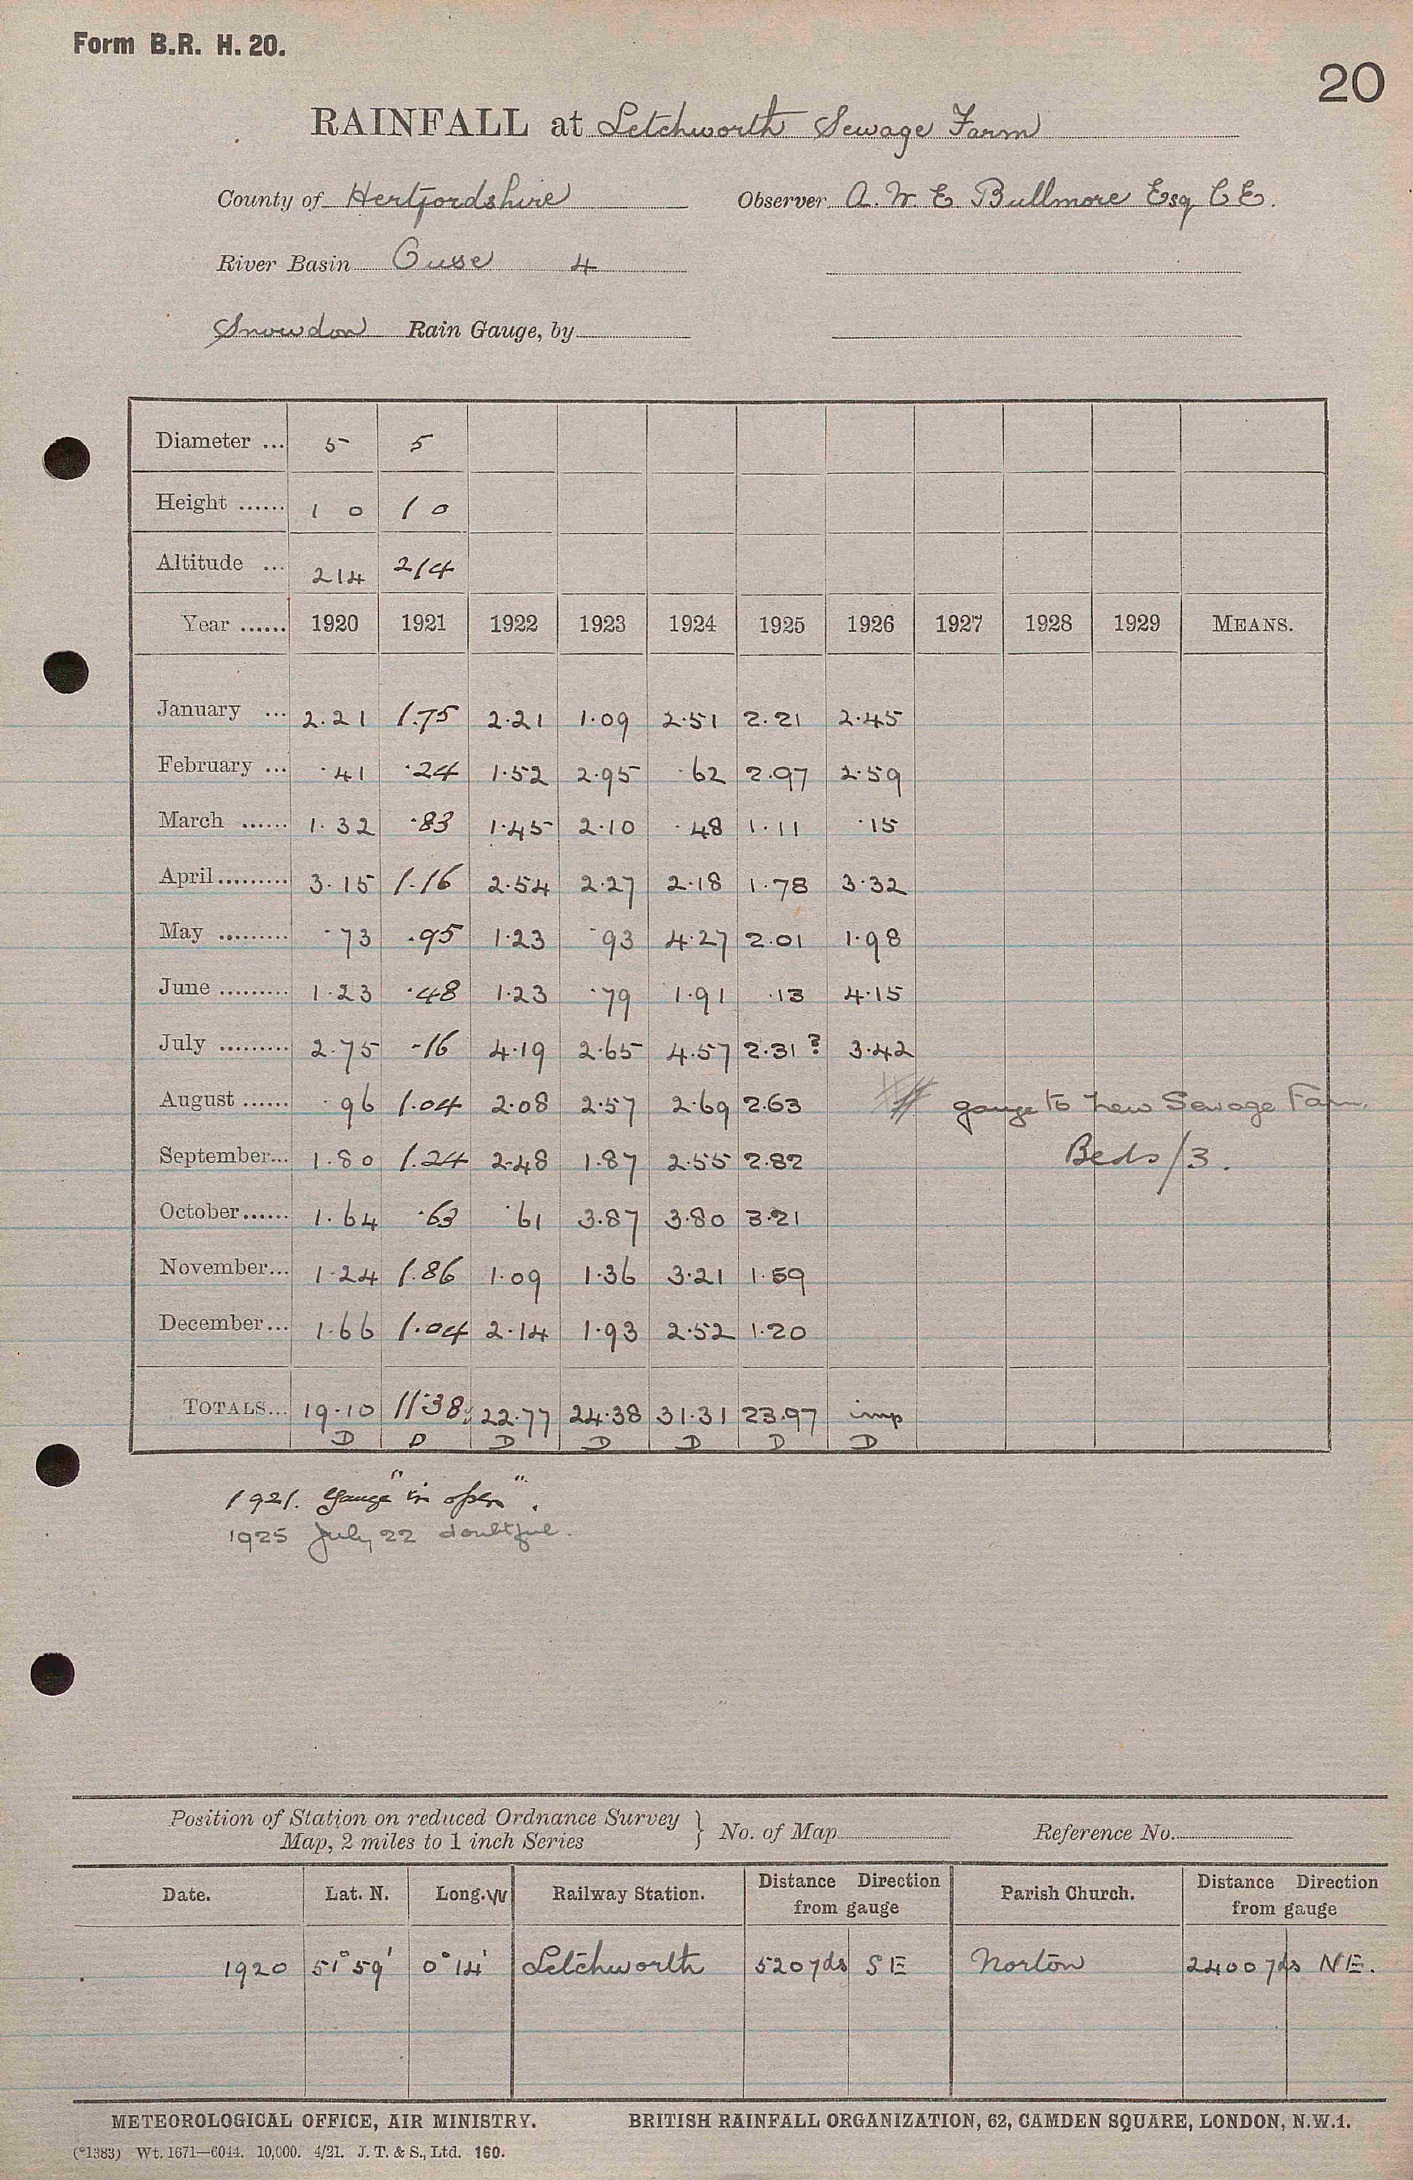 Form B.R. H. 20.
20
RAINFALL at Letchworth Sewage Farm
County of Hertfordshire Observer A. W. E. Bullmore Esq C E.
River Basin Ouse 4
Snowdon Rain Gauge, by
Diameter ... 5 5
Height ...... 1 0 1 0
Altitude ... 214 214
Year ...... 1920 1921 1922 1923 1924 1925 1926 1927 1928 1929 MEANS.
January ... 2.21 1.75 2.21 1.09 2.51 2.21 2.45
February ... .41 .24 1.52 2.95 .62 2.97 2.59
March ...... 1.32 .83 1.45 2.10 .48 1.11 .15
April ......... 3.15 1.16 2.54 2.27 2.18 1.78 3.32
May ......... .73 .95 1.23 .93 4.27 2.01 1.98
June ......... 1.23 .48 1.23 .79 1.91 .13 4.15
July ......... 2.75 .16 4.19 2.65 4.57 2.31? 3.42
August ...... .96 1.04 2.08 2.57 2.69 2.63 gauge to new Sewage Farm.
September... 1.80 1.24 2.48 1.87 2.55 2.82 Beds/3.
October...... 1.64 .63 .61 3.87 3.80 3.21
November... 1.24 1.86 1.09 1.36 3.21 1.59
December... 1.66 1.04 2.14 1.93 2.52 1.20
TOTALS... 19.10 11.38 22.77 24.38 31.31 23.97 imp
D D D D D D D
1921. Gauge "in open".
1925 July 22 doubtful.
Position of Station on reduced Ordnance Survey
Map, 2 miles to 1 inch Series } No. of Map Reference No.
Date. Lat. N. Long. W Railway Station. Distance Direction from gauge Parish Church. Distance Direction from gauge
1920 51° 59' 0° 14' Letchworth 520 yds SE Norton 2400 yds NE.
METEOROLOGICAL OFFICE, AIR MINISTRY. BRITISH RAINFALL ORGANIZATION, 62, CAMDEN SQUARE, LONDON, N.W.1.
(*1383) Wt. 1671—6044. 10,000. 4/21. J. T. & S., Ltd. 160.